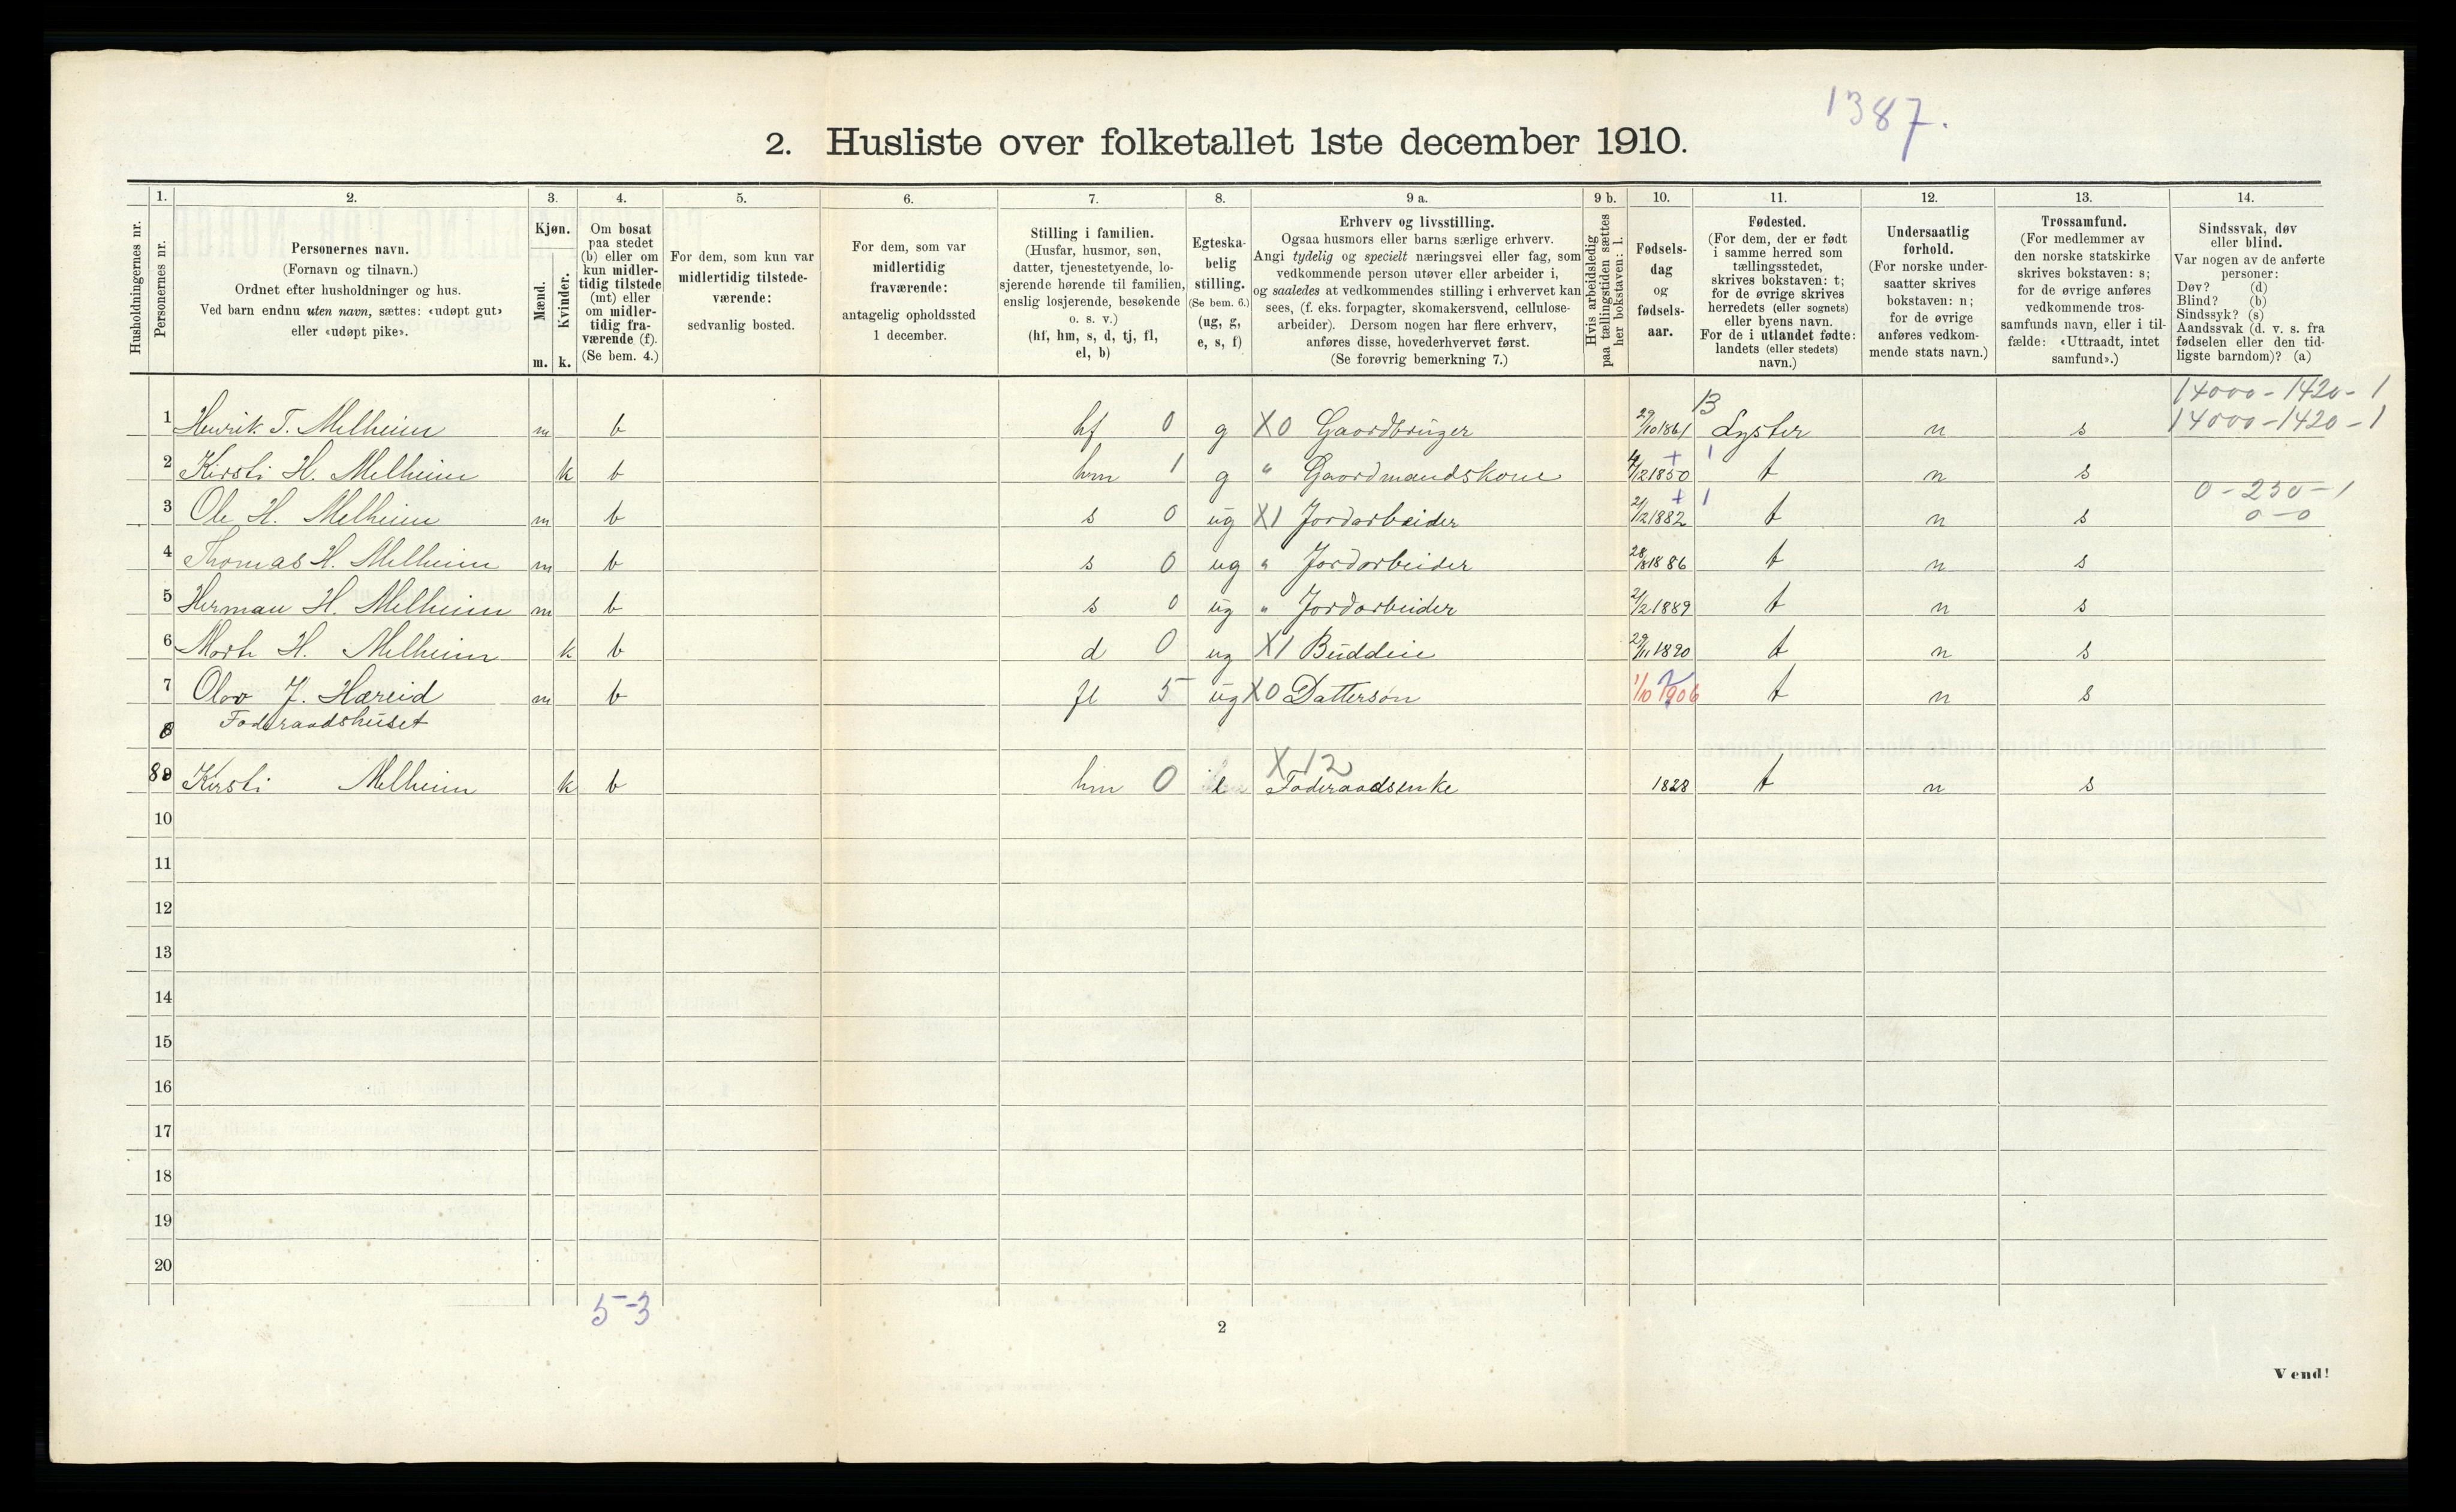 1387.
2. Husliste over folketallet 1ste december 1910.
Husholdningernes nr.
1. Personernes nr.
2. Personernes navn. (Fornavn og tilnavn.) Ordnet efter husholdninger og hus. Ved barn endnu uten navn, sættes: «udøpt gut» eller «udøpt pike».
3. Kjøn. Mænd. m. Kvinder. k.
4. Om bosat paa stedet (b) eller om kun midlertidig tilstede (mt) eller om midlertidig fraværende (f). (Se bem. 4.)
5. For dem, som kun var midlertidig tilstedeværende: sedvanlig bosted.
6. For dem, som var midlertidig fraværende: antagelig opholdssted 1 december.
7. Stilling i familien. (Husfar, husmor, søn, datter, tjenestetyende, losjerende hørende til familien, enslig losjerende, besøkende o. s. v.) (hf, hm, s, d, tj, fl, el, b)
8. Egteskabelig stilling. (Se bem. 6.) (ug, g, e, s, f)
9 a. Erhverv og livsstilling. Ogsaa husmors eller barns særlige erhverv. Angi tydelig og specielt næringsvei eller fag, som vedkommende person utøver eller arbeider i, og saaledes at vedkommendes stilling i erhvervet kan sees, (f. eks. forpagter, skomakersvend, cellulosearbeider). Dersom nogen har flere erhverv, anføres disse, hovederhvervet først. (Se forøvrig bemerkning 7.)
9 b. Hvis arbeidsledig paa tællingstiden sættes her bokstaven: l.
10. Fødselsdag og fødselsaar.
11. Fødested. (For dem, der er født i samme herred som tællingsstedet, skrives bokstaven: t; for de øvrige skrives herredets (eller sognets) eller byens navn. For de i utlandet fødte: landets (eller stedets) navn.)
12. Undersaatlig forhold. (For norske undersaatter skrives bokstaven: n; for de øvrige anføres vedkommende stats navn.)
13. Trossamfund. (For medlemmer av den norske statskirke skrives bokstaven: s; for de øvrige anføres vedkommende trossamfunds navn, eller i tilfælde: «Uttraadt, intet samfund».)
14. Sindssvak, døv eller blind. Var nogen av de anførte personer: Døv? (d) Blind? (b) Sindssyk? (s) Aandssvak (d. v. s. fra fødselen eller den tidligste barndom)? (a)
13 14000-1420-1
1 Henrik T. Melheim m b hf 0 g X0 Gaardbruger 29/10 1861 Lyster n s 14000-1420-1
2 Kirsti H. Melheim k b hm 1 g " Gaardmandskone 4/12 1850 + 1 t n s
0-250-1
3 Ole H. Melheim m b s 0 ug X1 Jordarbeider 21/12 1882 + 1 t n s 0-0
4 Thomas H. Melheim m b s 0 ug " Jordarbeider 28/8 1886 t n s
5 Herman H. Melheim m b s 0 ug " Jordarbeider 21/2 1889 t n s
6 Marta H. Melheim k b d 0 ug X1 Buddeie 29/11 1890 t n s
7 Olav J. Hæreid m b fl 5 ug X0 Dattersøn 1/10 1906 t n s
8 Foderaadshuset
8 9 Kersti Melheim k b hm 0 e X12 Foderaadsenke 1828 t n s
10
11
12
13
14
15
16
17
18
19
20
5-3
2
Vend!